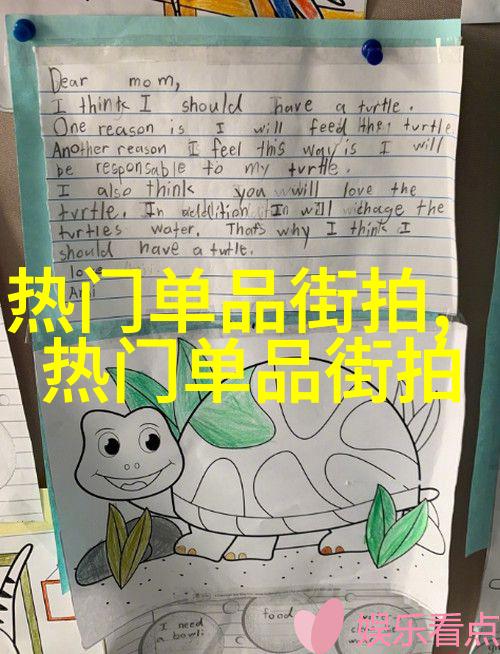 Dear mom,
I think I should have a turtle.
One reason is I will feed the turtle.
Another reason I feel this way is I will
be responsable to my turtle.
I also think you will love the
turtle. In addition I will chage the
turtles water. That's why I think I
should have a turtle.
love
热门单品街拍,
热门单品街拍
I need
a bowl
food
娱乐看点